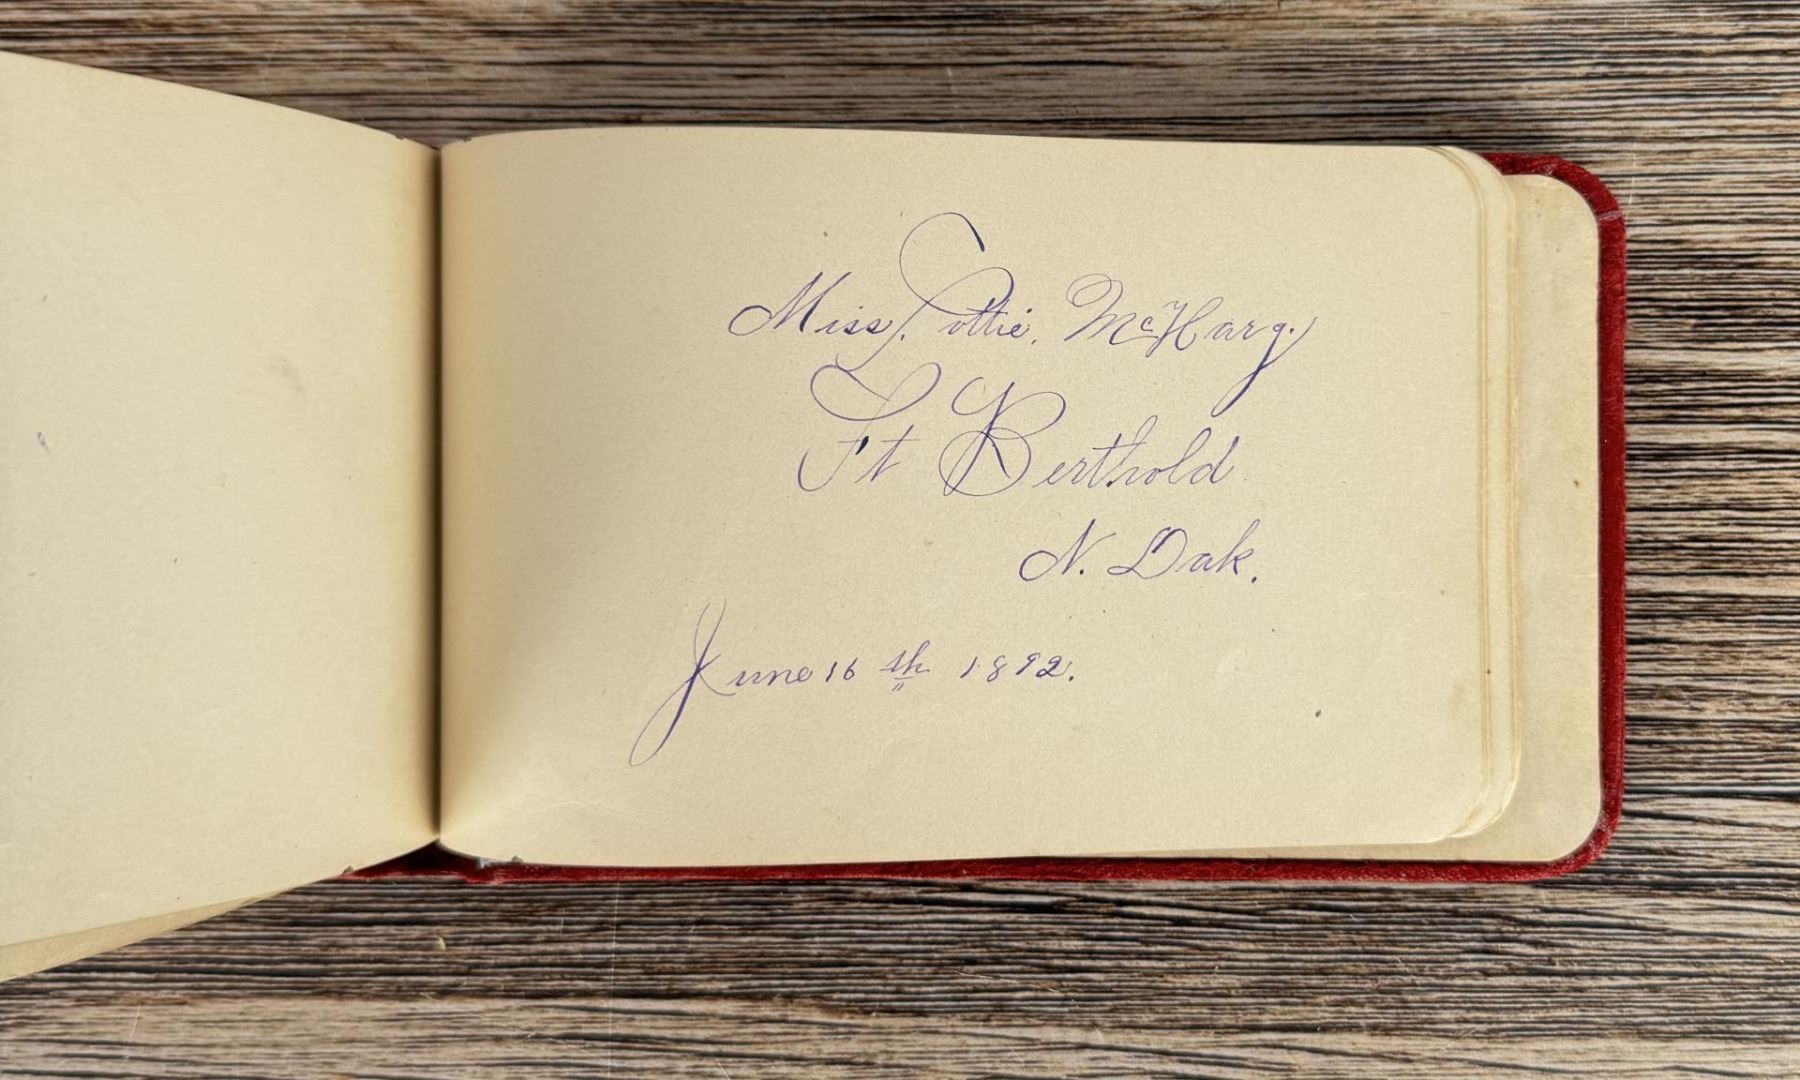 Miss. Lottie. McHarg.
Ft Berthold
N. Dak.
June 16th 1892.